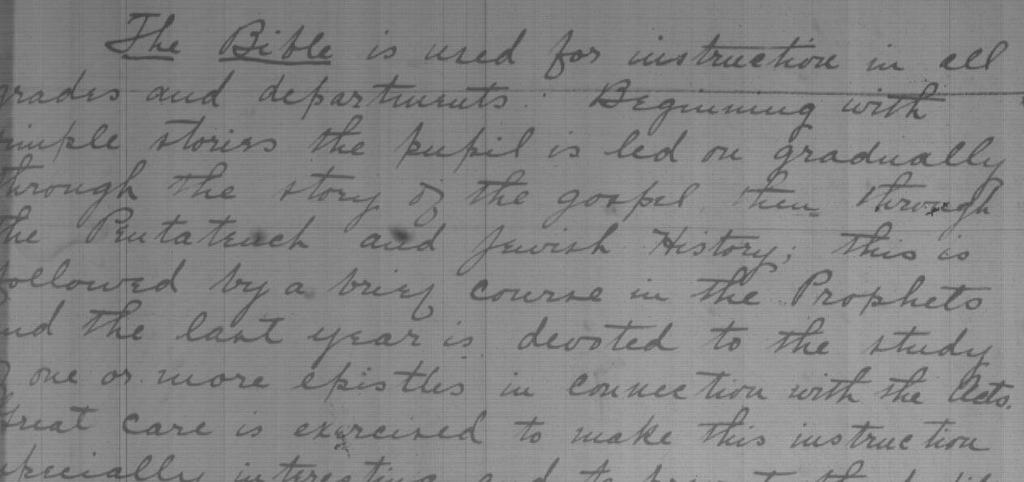 The Bible is used for instruction in all
grades and departments. Beginning with
simple stories the pupil is led on gradually
through the story of the gospel then through
the Pentateuch and Jewish History; this is
followed by a brief course in the Prophets
and the last year is devoted to the study
of one or more epistles in connection with the Acts.
Great care is exercised to make this instruction
specially interesting and to